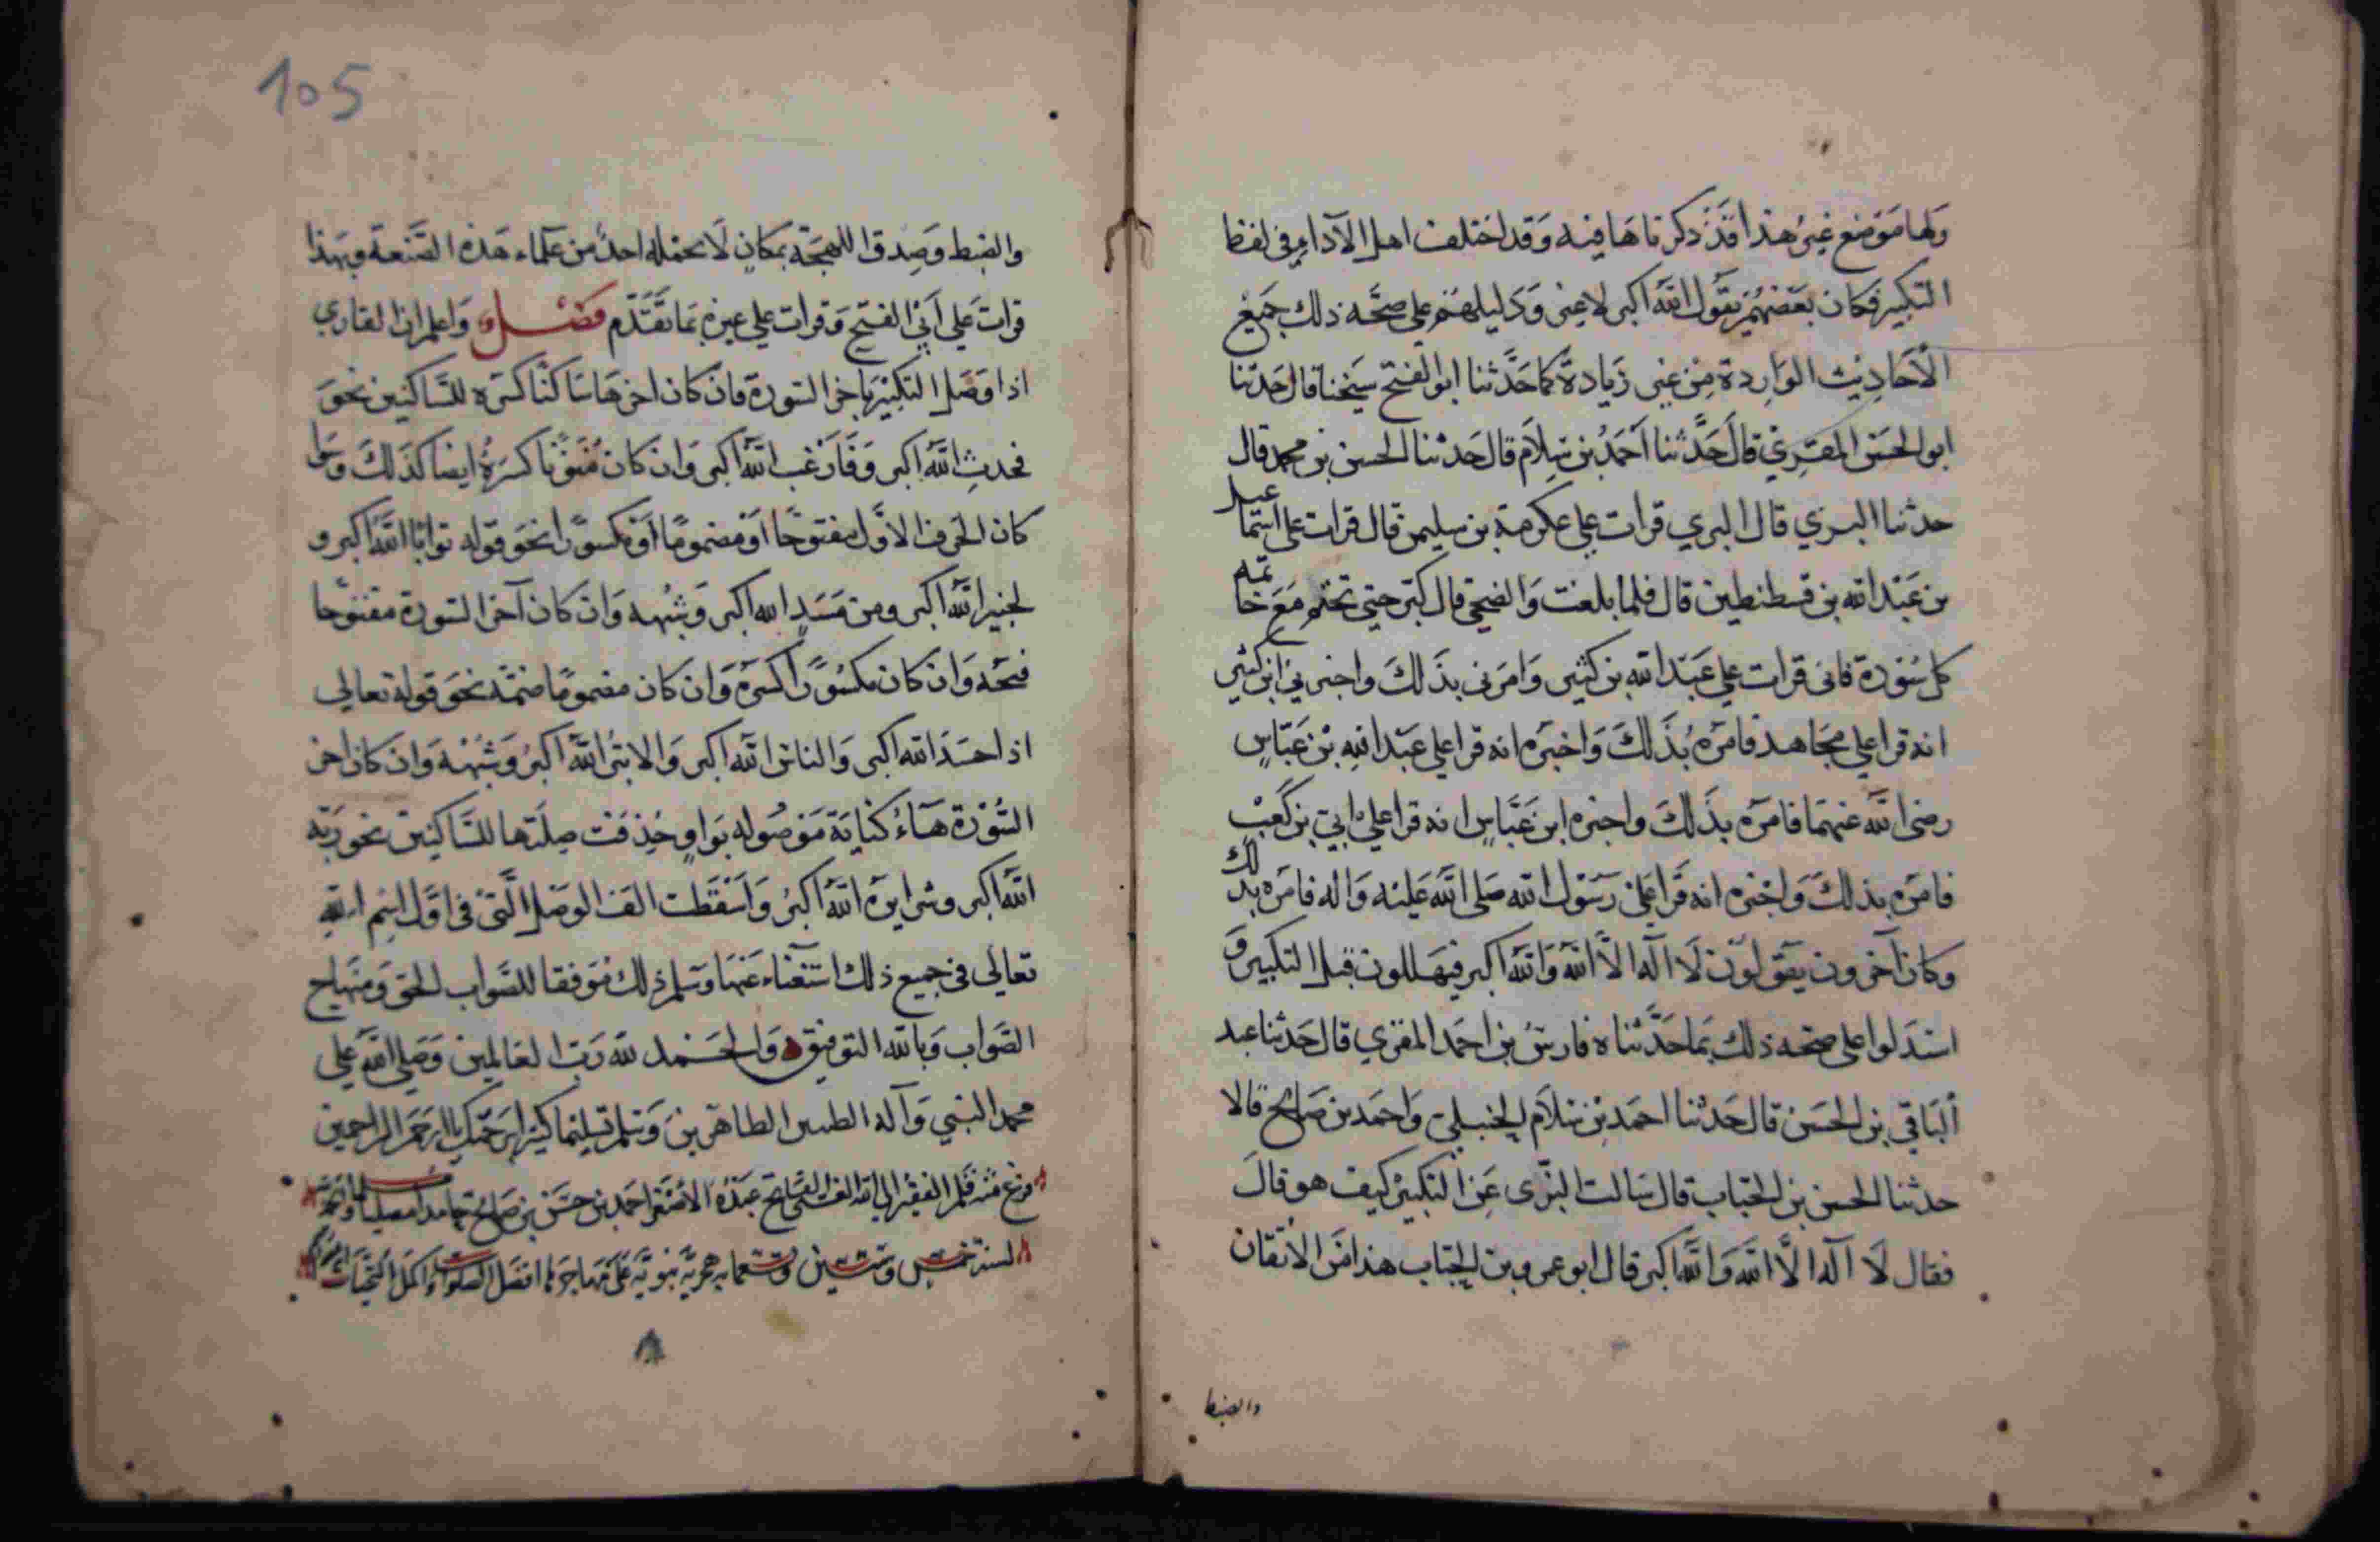 ولها موضع غير هذا قد ذكرناها فيه وقد اختلف اهل الآداء في لفظ
التكبير فكان بعضهم يقول الله اكبر لا غير ودليلهم على صحة ذلك جميع
الأحاديث الواردة من غير زيادة كما حدثنا ابو الفتح شيخنا قال حدثنا
ابو الحسن المقرئ قال حدثنا أحمد بن سلام قال حدثنا الحسن بن محمد قال
حدثنا البزي قال البزي قرات على عكرمة بن سليمن قال قرات على اسمعيل
بن عبد الله بن قسطنطين قال فلما بلغت والضحى قال كبر حتى تختم مع خاتمه
كل سورة فانى قرات على عبد الله بن كثير وامرنى بذلك واخبرني ابن كثير
انه قرا على مجاهد فامره بذلك واخبره انه قرا على عبد الله بن عباس
رضى الله عنهما فامره بذلك واخبره ابن عباس انه قرا على ابي بن كعب
فامره بذلك واخبره انه قرا على رسول الله صلى الله عليه واله فامره بذلك
وكان آخرون يقولون لا اله الا الله والله اكبر فيهللون قبل التكبير و
استدلوا على صحه ذلك بما حدثناه فارس بن احمد المقري قال حدثنا عبد
الباقي بن الحسن قال حدثنا احمد بن سلام الختلي واحمد بن صالح قالا
حدثنا الحسن بن الحباب قال سالت البزى عن التكبير كيف هو قال
فقال لا اله الا الله والله اكبر قال ابو عمرو بن الحباب هذا من الاتقان
والضبط
105
والضبط وصدق اللهجة بمكان لا يجهله احد من علماء هذه الصنعة وبهذا
قرات على أبي الفتح وقرات على غيره بما تقدم فصل واعلم ان القاري
اذا وصل التكبير باخر السورة فان كان اخرها ساكنا كسره للساكنين نحو
فحدث الله اكبر وفارغب الله اكبر وان كان منونا كسره ايضا كذلك وسوا
كان الحرف الاول مفتوحا او مضموما أو مكسورا نحو قوله توابا الله اكبر و
لخبير الله اكبر ومن مسد الله اكبر وشبهه وان كان آخر السورة مفتوحا
فتحه وان كان مكسورا كسره وان كان مضموما ضمه نحو قوله تعالى
اذا حسد الله اكبر والناس الله اكبر والابتر الله اكبر وشبهه وان كان اخر
السورة هاء كناية موصوله بواو حذفت صلتها للساكنين نحو ربه
الله اكبر وشرا يره الله اكبر واسقطت الف الوصل التي في اول اسم الله
تعالى في جميع ذلك استغناء عنها وسلم ذلك موفقا للصواب الحق ومنهاج
الصواب وبالله التوفيق والحمد لله رب العالمين وصلى الله على
محمد النبي وآله الطيبين الطاهرين وسلم تسليما كثيرا برحمتك يا ارحم الراحمين
فرغ منه قلم الفقير الى الله عبده الأصغر احمد بن حسن بن صالح حامدا مصليا
لسنة خمس وستين وتسعمايه هجرية نبوية على مهاجرها افضل الصلوات واكمل التحيات